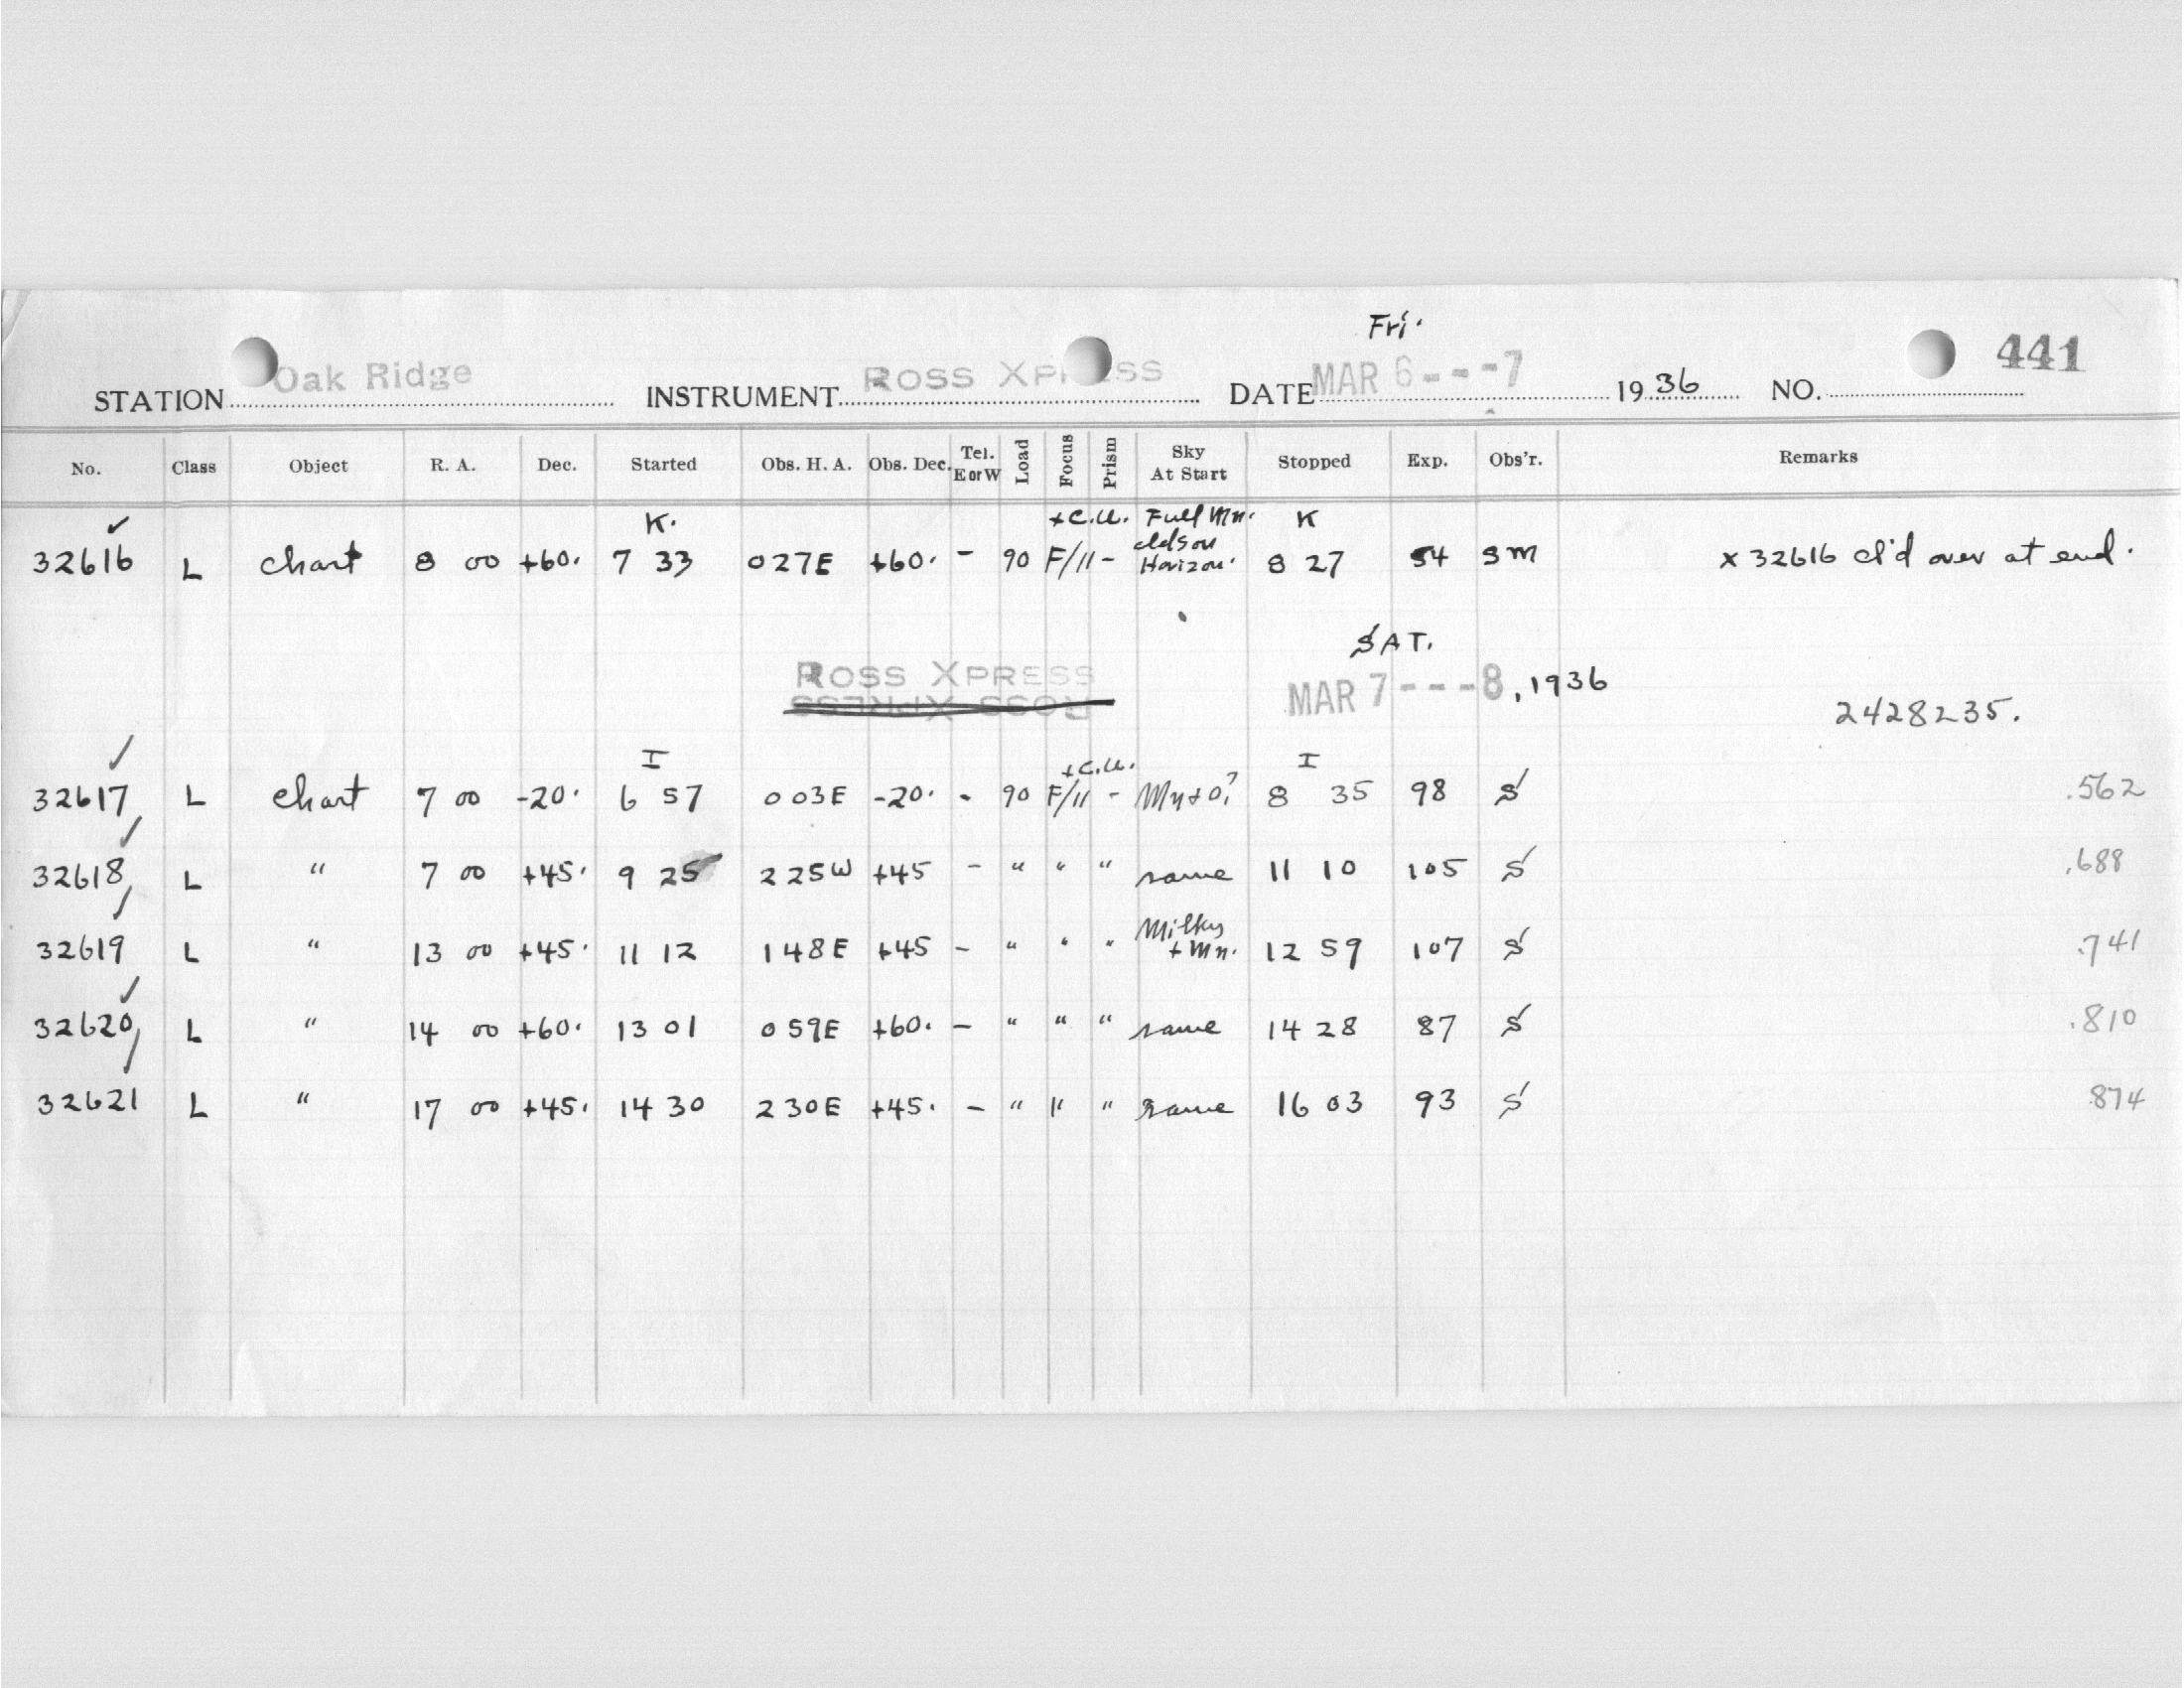 Fri.
441
STATION Oak Ridge INSTRUMENT ROSS XPRESS DATE MAR 6---7 1936 NO.
No. Class Object R. A. Dec. Started Obs. H. A. Obs. Dec. Tel. E or W Load Focus Prism Sky At Start Stopped Exp. Obs'r. Remarks
K. + C.U. Full Mn. K
32616 L chart 8 00 +60. 7 33 027E +60. - 90 F/11 - clds on Horizon. 8 27 54 SM x 32616 cl'd over at end.
SAT.
ROSS XPRESS MAR 7---8, 1936
ROSS XPRESS
2428235.
I + C.U. I
32617 L chart 7 00 -20. 6 57 003E -20. - 90 F/11 - 8 35 98 S .562
32618 L " 7 00 +45. 9 25 225W +45 - " " " same 11 10 105 S .688
32619 L " 13 00 +45. 11 12 148E +45 - " " " Milky + Mn. 12 59 107 S .741
32620 L " 14 00 +60. 13 01 059E +60. - " " " same 14 28 87 S .810
32621 L " 17 00 +45. 14 30 230E +45. - " " " same 16 03 93 S 874